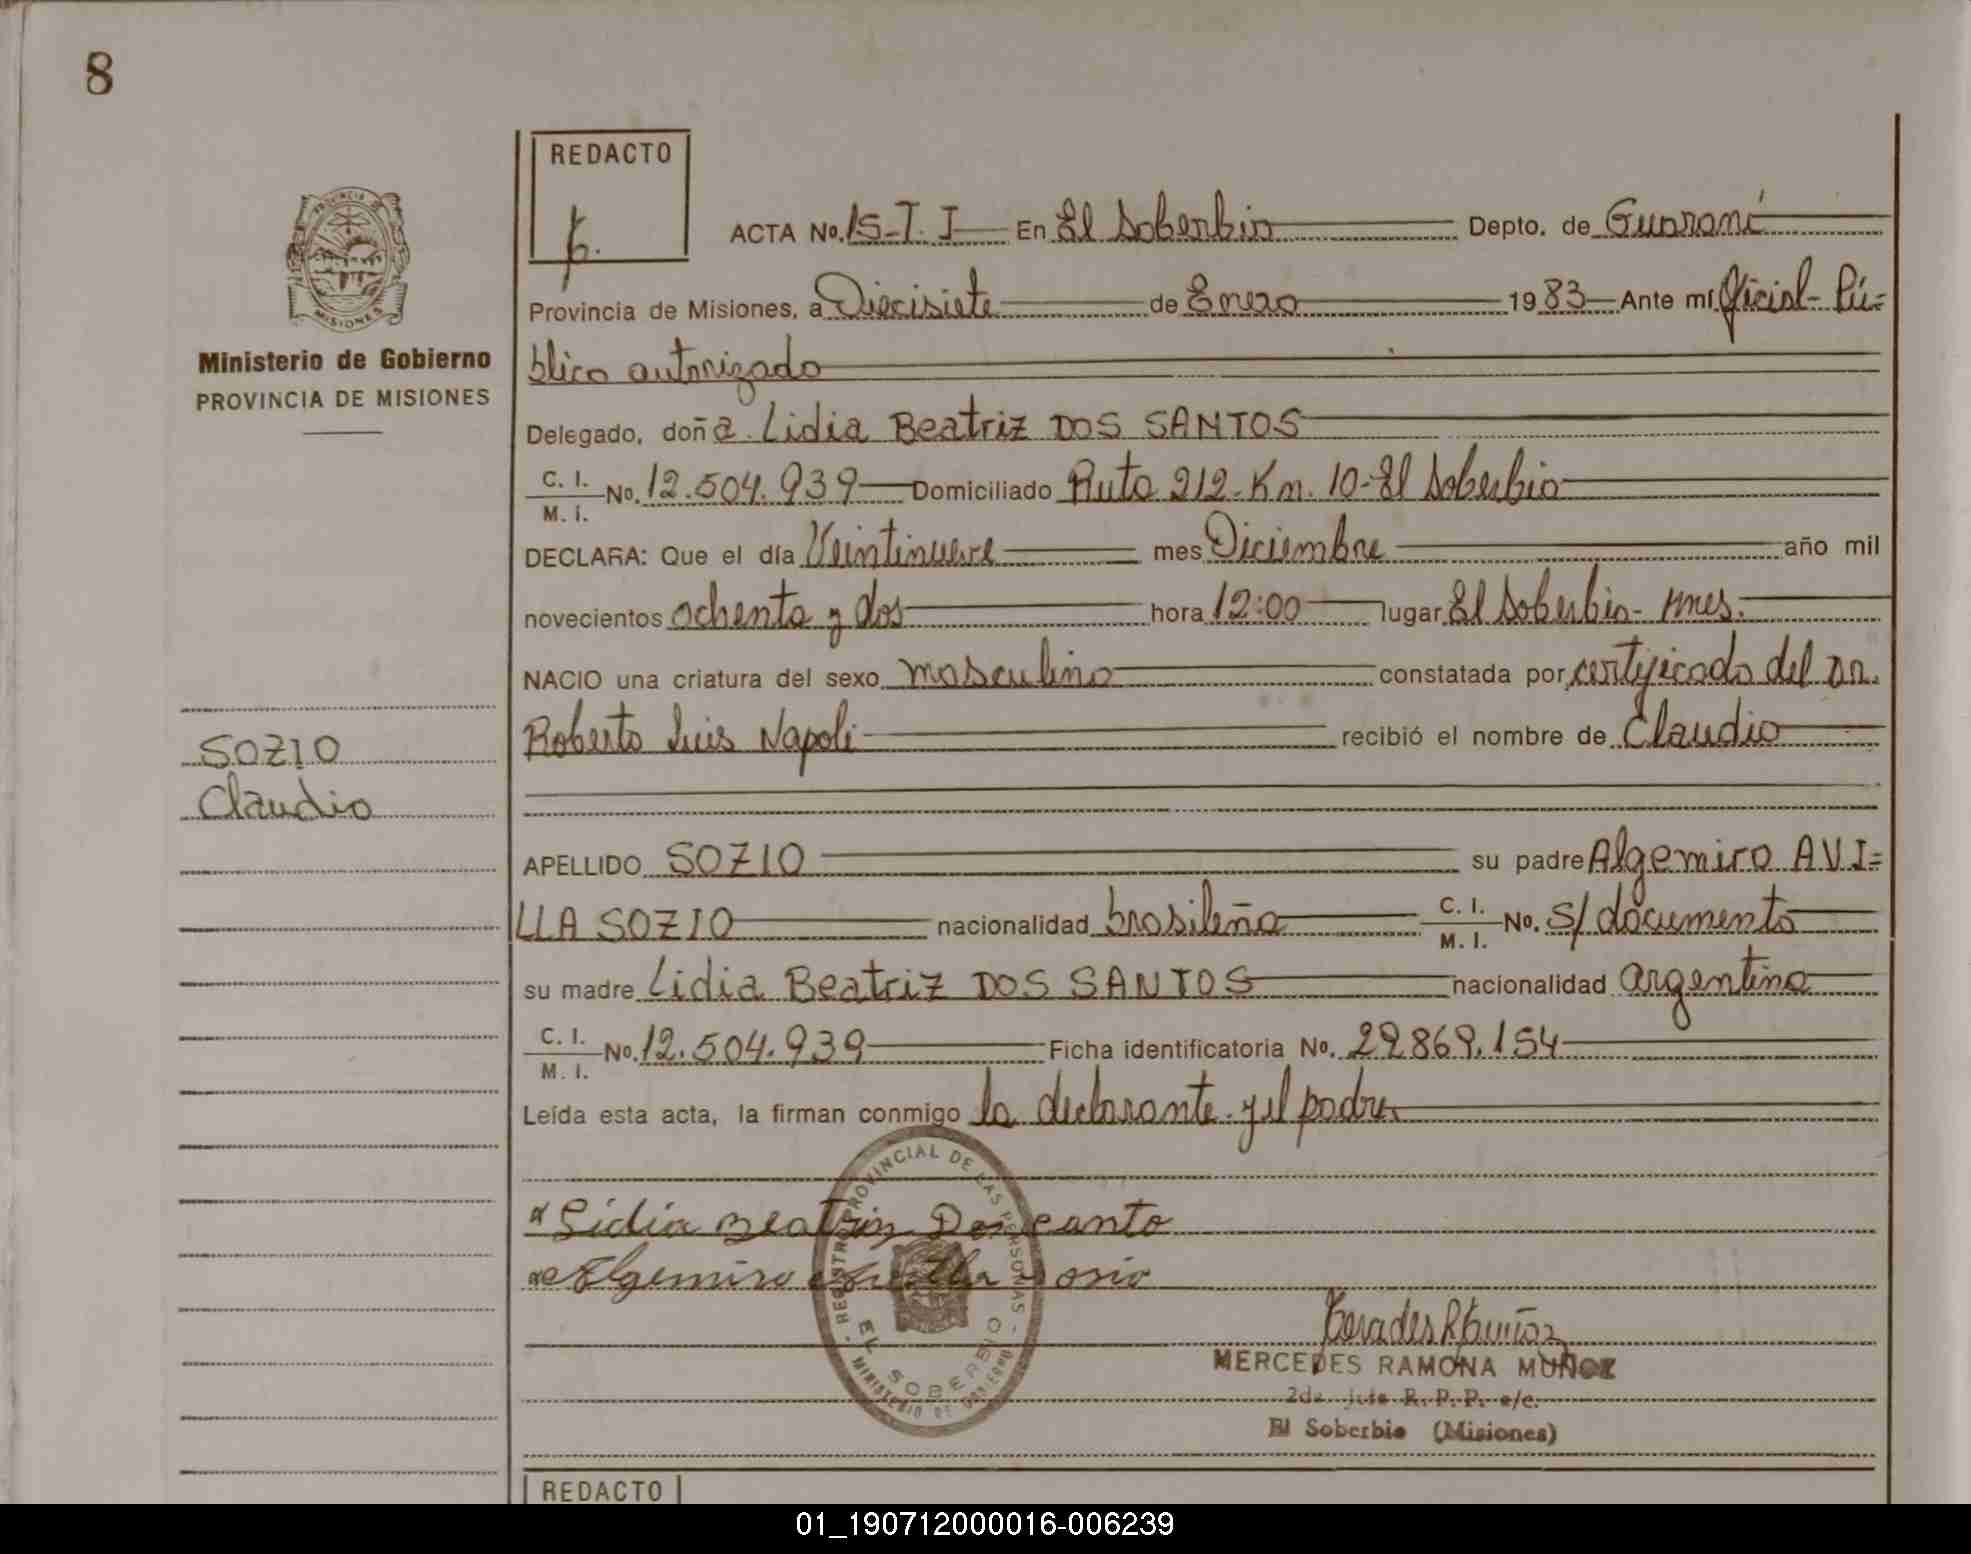 8
REDACTO
ACTA No. 15-T. I En El Soberbio Depto. de Guaraní
Provincia de Misiones, a Diecisiete de Enero 1983 Ante mí Oficial Pú=
blico autorizado
Ministerio de Gobierno
PROVINCIA DE MISIONES
Delegado, doña Lidia Beatriz DOS SANTOS
C. I. M. I. No. 12.504.939 Domiciliado Ruta 212-Km. 10-El Soberbio
DECLARA: Que el día Veintinueve mes Diciembre año mil
novecientos ochenta y dos hora 12:00 lugar El Soberbio- Mnes.
NACIO una criatura del sexo masculino constatada por certificado del Dr.
Roberto Luis Napoli recibió el nombre de Claudio
SOZIO
Claudio
APELLIDO SOZIO su padre Algemiro AVI=
LLA SOZIO nacionalidad brasileña C. I. M. I. No. S/ documento
su madre Lidia Beatriz DOS SANTOS nacionalidad argentina
C. I. M. I. No. 12.504.939 Ficha identificatoria No. 29.869.154
Leída esta acta, la firman conmigo la declarante y el padre.
PROVINCIA DE
MISIONES
REGISTRO PROVINCIAL DE LAS PERSONAS
EL SOBERBIO
MINISTERIO DE GOBIERNO
Lidia Beatriz
Algemiro
MERCEDES RAMONA MUÑOZ
2da. R. P. P. e/c.
El Soberbio (Misiones)
REDACTO
01_190712000016-006239